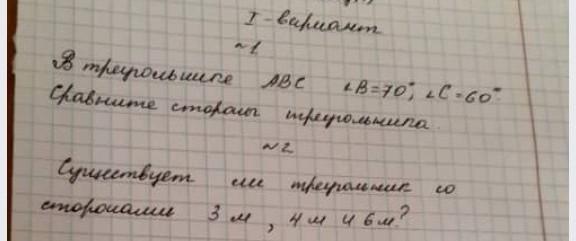 I - вариант
~1
В треугольнике ABC ∠B=70°, ∠C=60°.
Сравните стороны треугольника.
~2
Существует ли треугольник со
сторонами 3 м, 4 м и 6 м?